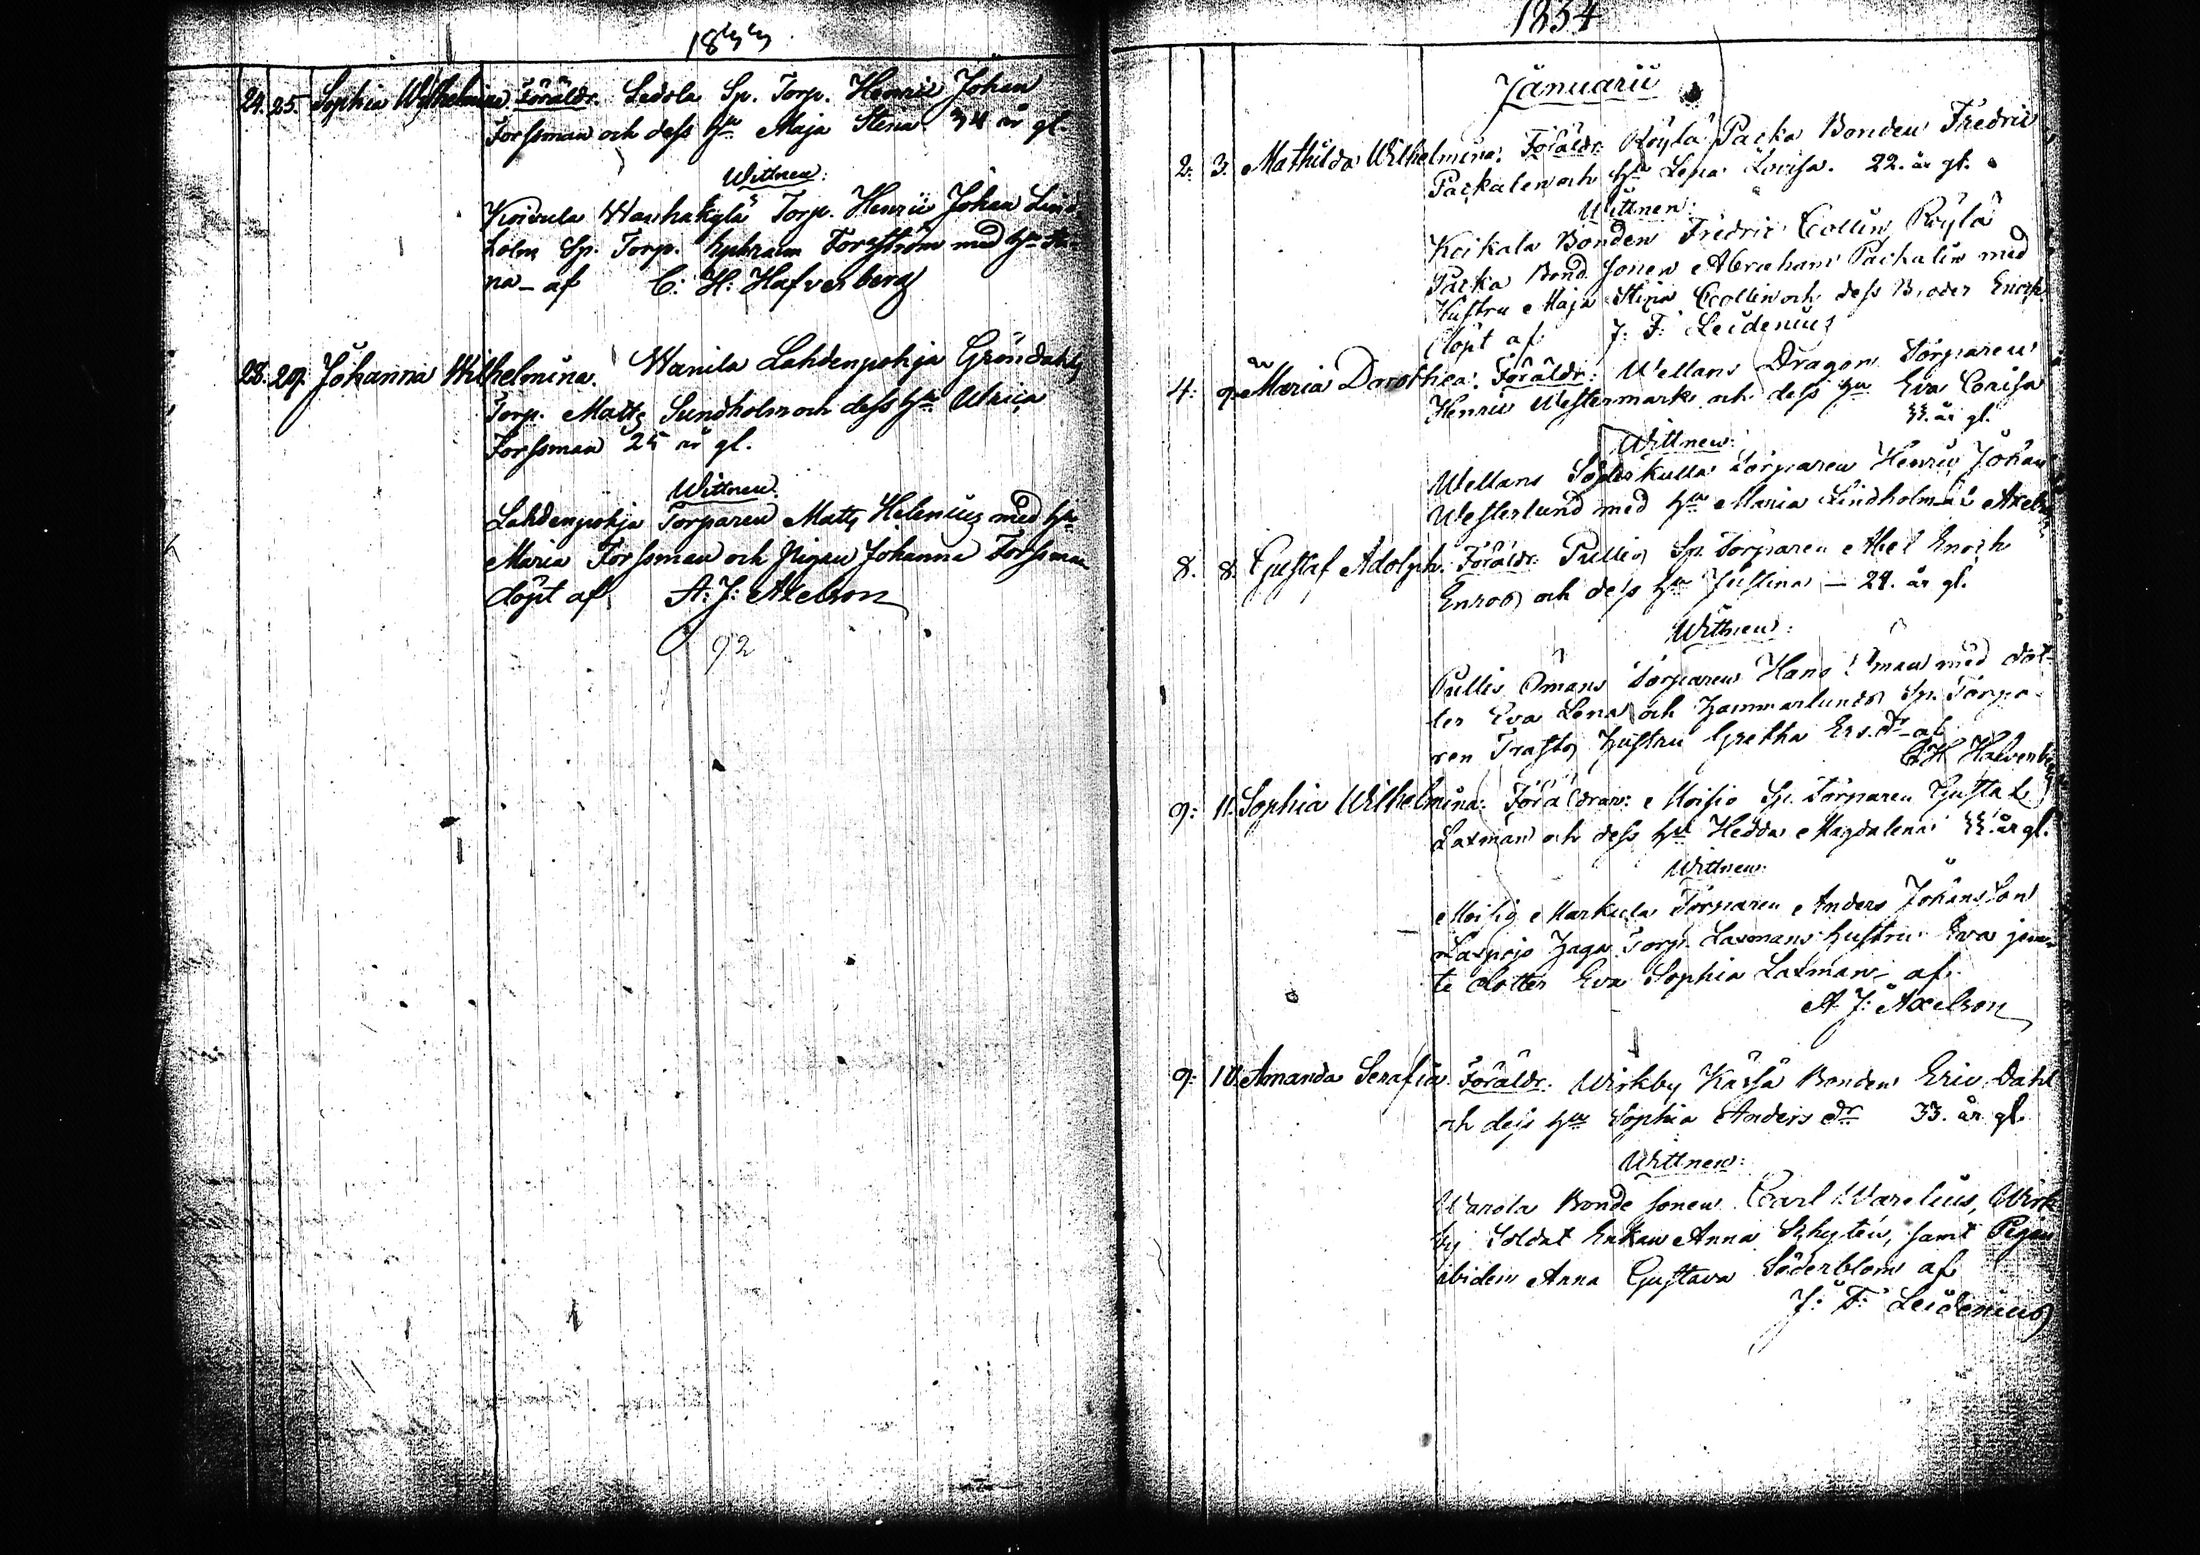 1833
24. 25. Sophia Wilhelmina. Föräldr. Ladola Sp. Torp. Henric Johan
Forssman och dess hu Maja Stena 34 år gl.
Wittnen:
Torp. Henric Johan Lind-
holm Sp. Torp. Ephraim Forsström med hu Ste-
na – af C: H: Hafverberg
28. 29. Johanna Wilhelmina. Wanila Lahdenpohja Gröndahls
Torp. Matts Sundholm och dess hu Ulrica
Forssman 25 år gl.
Wittnen.
Lahdenpohja Torparen Matts Helenius med hu
Maria Forssman och pigan Johanna Forssman
döpt af A: J: Axelson
92
1834
Januarii
2. 3. Mathilda Wilhelmina. Föräldr. Röylä Packa Bonden Fredric
Packalen och hu Lena Lovisa. 22. år gl.
Wittnen:
Koikala Bonden Fredric Collin, Röylä
Packa Bond Sonen Abraham Packalin med
Hustru Maja Stina Collin och dess Broder Enoch
döpt af J: F: Leidenius
4. 9. Maria Dorothea. Föräldr. Wellans Dragon Torparen
Henric Westermark och dess hu Eva Lovisa
33. år gl.
Wittnen:
Wellans Söderkulla Torparen Henric Johan
Westerlund med hu Maria Lindholm af Axelson
8. 8. Gustaf Adolph. Föräldr. Pullis Sp. Torparen Abel Enoch
Enros och dess hu Justina – 29. år gl.
Wittnen:
Pullis Ömans Torparen Hans Öman med dot-
ter Eva Lena och Hammarlunds Sp. Torpa-
ren Hustru Gretha Ers. dr – af
C H Hafverberg
9: 11. Sophia Wilhelmina. Föräldrar: Moisio Sp. Torparen Gustaf
Laxman och dess hu Hedda Magdalena 33. år gl.
Wittnen:
Markula Torparen Anders Johansson
Haga Torp. Laxmans hustru Eva jem-
te dotter Eva Sophia Laxman – af
A. J: Axelson
9: 10. Amanda Serafia. Föräldr. Wirkby Kåssa Bonden Eric Dahl
och dess hu Sophia Anders dr 33. år gl.
Wittnen:
Warola Bonde Sonen Carl Warelius, Wirk-
by Soldat Enkan Anna Schyten, samt Pigan
ibidem Anna Gustava Söderblom af
J: F: Leidenius